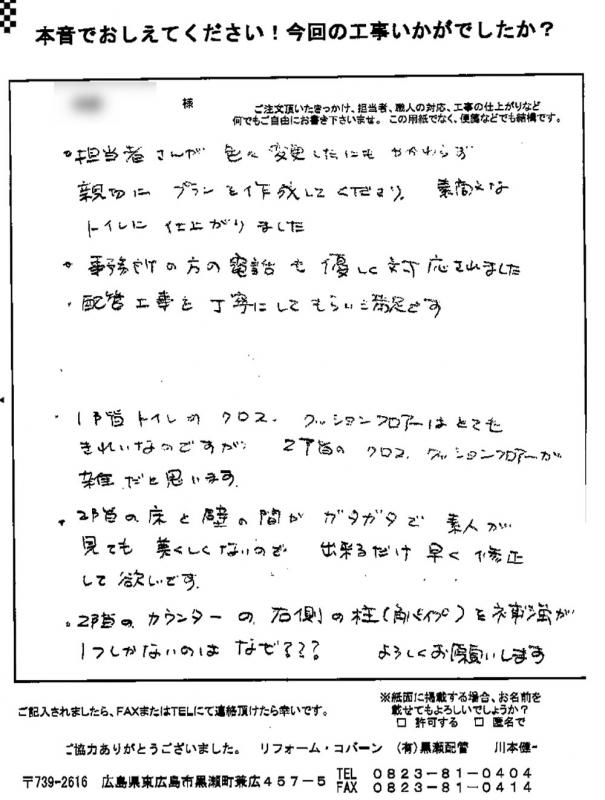 本音でおしえてください!今回の工事いかがでしたか?
様
ご注文頂いたきっかけ、担当者、職人の対応、工事の仕上がりなど
何でもご自由にお書き下さいませ。この用紙でなく、便箋などでも結構です。
・担当者さんが 色々変更したにもかかわらず
親切に プランを作成してくださり、素敵な
トイレに仕上がりました
・事務の方の電話も優しく対応されました
・配管工事を丁寧にしてもらい満足です
・1階トイレのクロス、クッションフロアーはとても
きれいなのですが、2階のクロス、クッションフロアーが
雑だと思います。
・2階の床と壁の間がガタガタで 素人が
見ても美くしくないので 出来るだけ早く修正
して欲しいです。
・2階のカウンターの右側の柱(角パイプ)を補強が
1つしかないのはなぜ??? よろしくお願いします
ご記入されましたら、FAXまたはTELにて連絡頂けたら幸いです。
※紙面に掲載する場合、お名前を
載せてもよろしいでしょうか?
□ 許可する □ 匿名で
ご協力ありがとうございました。 リフォーム・コバーン (有)黒瀬配管 川本健一
〒739-2616 広島県東広島市黒瀬町兼広457-5 TEL 0823-81-0404
FAX 0823-81-0414